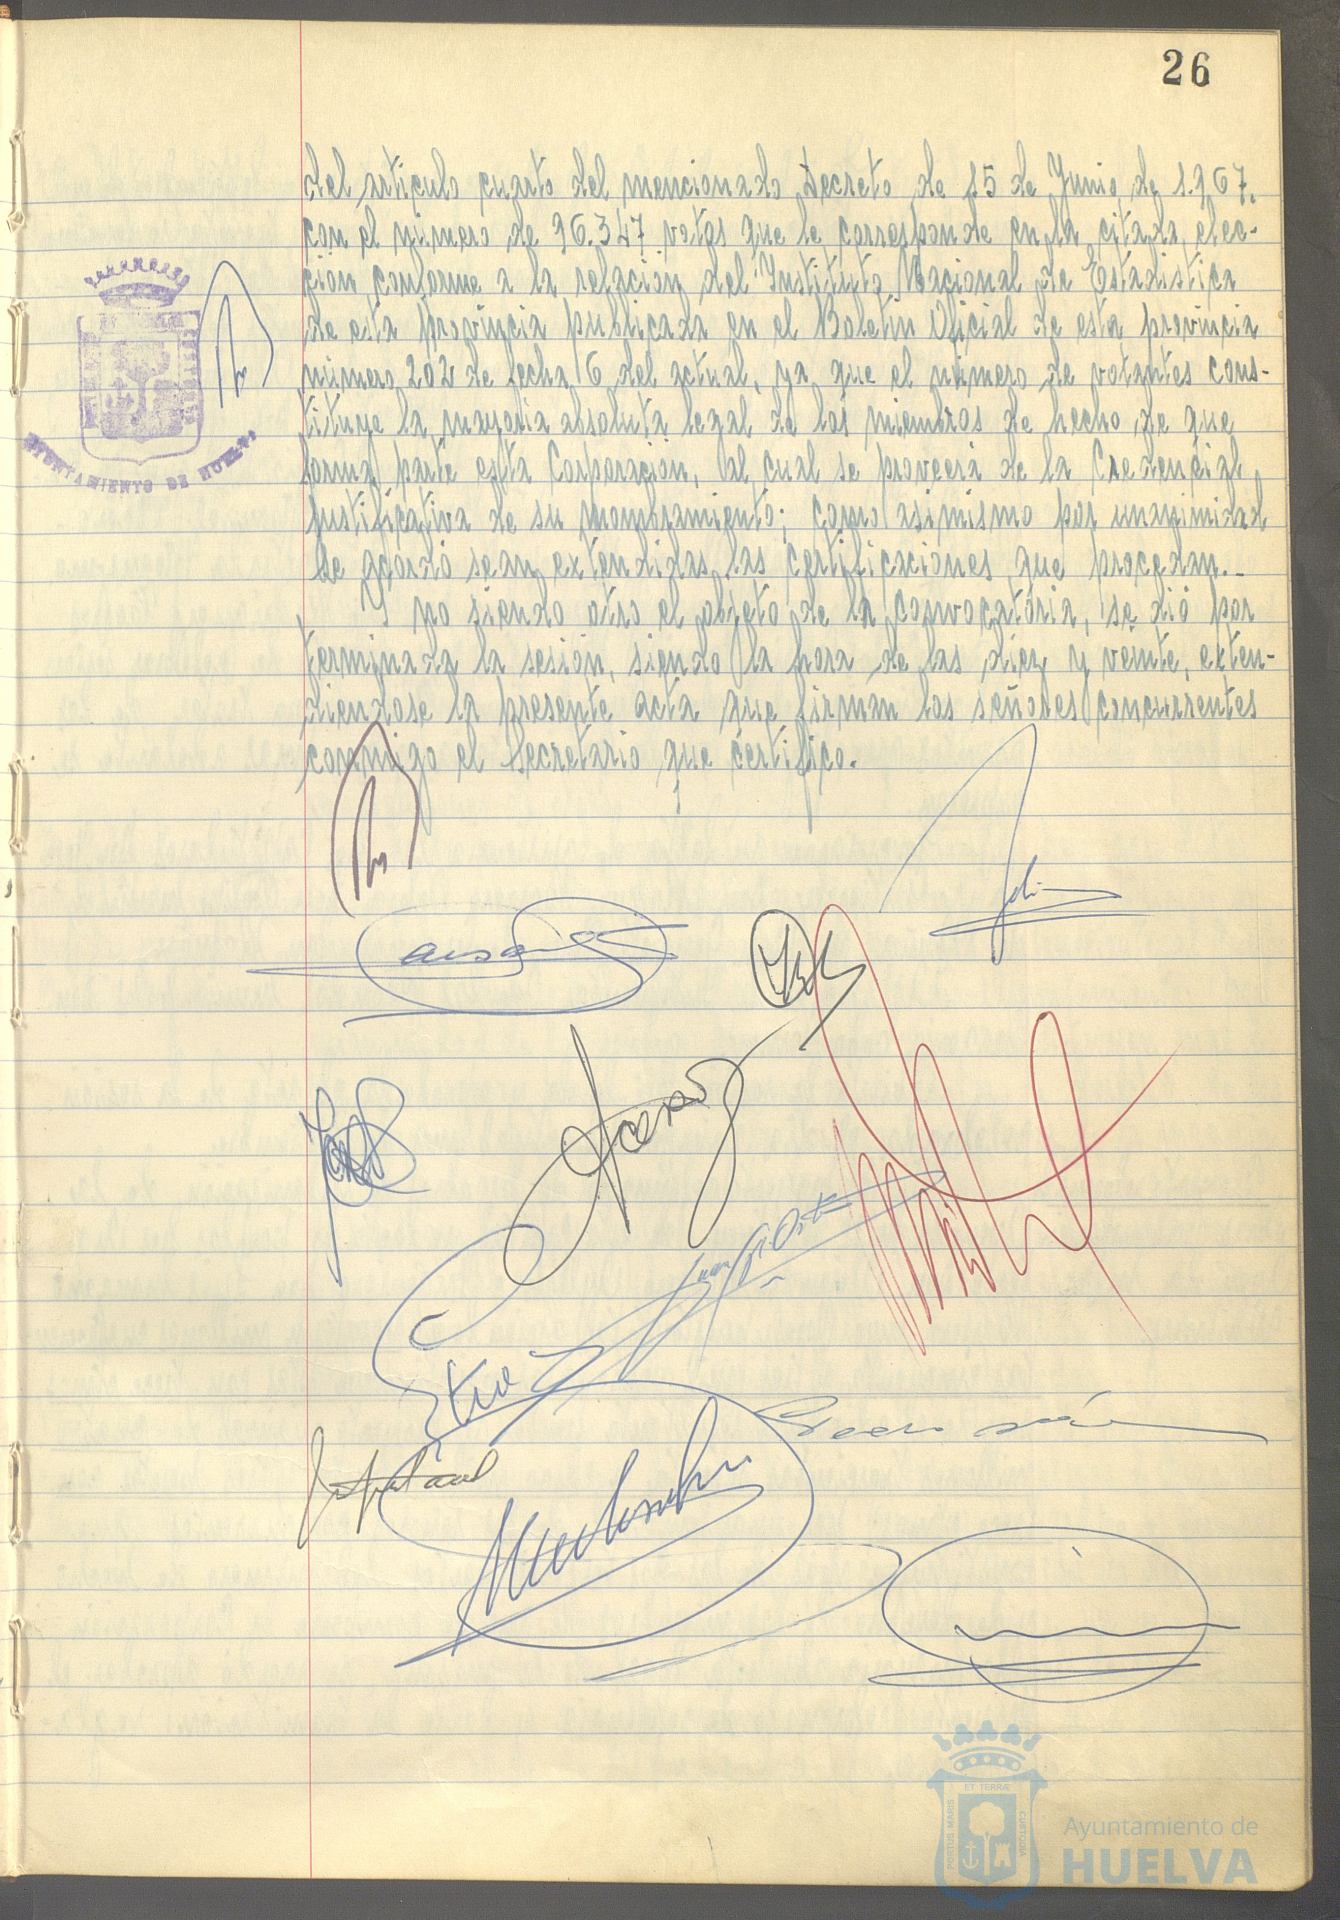 26
del artículo cuarto del mencionado Decreto de 15 de Junio de 1.967,
con el número de 96.347 votos que le corresponde en la citada elec-
ción conforme a la relación del Instituto Nacional de Estadistica
de esta provincia publicada en el Boletín Oficial de esta provincia
número 202 de fecha 6 del actual, ya que el número de votantes cons-
tituye la mayoria absoluta legal de los miembros de hecho, de que
forma parte esta Corporación, al cual se proveerá de la Credencial
justificativa de su nombramiento; como asimismo por unanimidad
se acordó sean extendidas las certificaciones que procedan.-
Y no siendo otro el objeto de la convocatória, se dió por
terminada la sesión, siendo la hora de las diez y veinte, exten-
diendose la presente acta que firman los señores concurrentes
conmigo el Secretario que certifico.
AYUNTAMIENTO DE HUELVA
ET TERRÆ
PORTUS MARIS
CUSTODIA
Ayuntamiento de
HUELVA